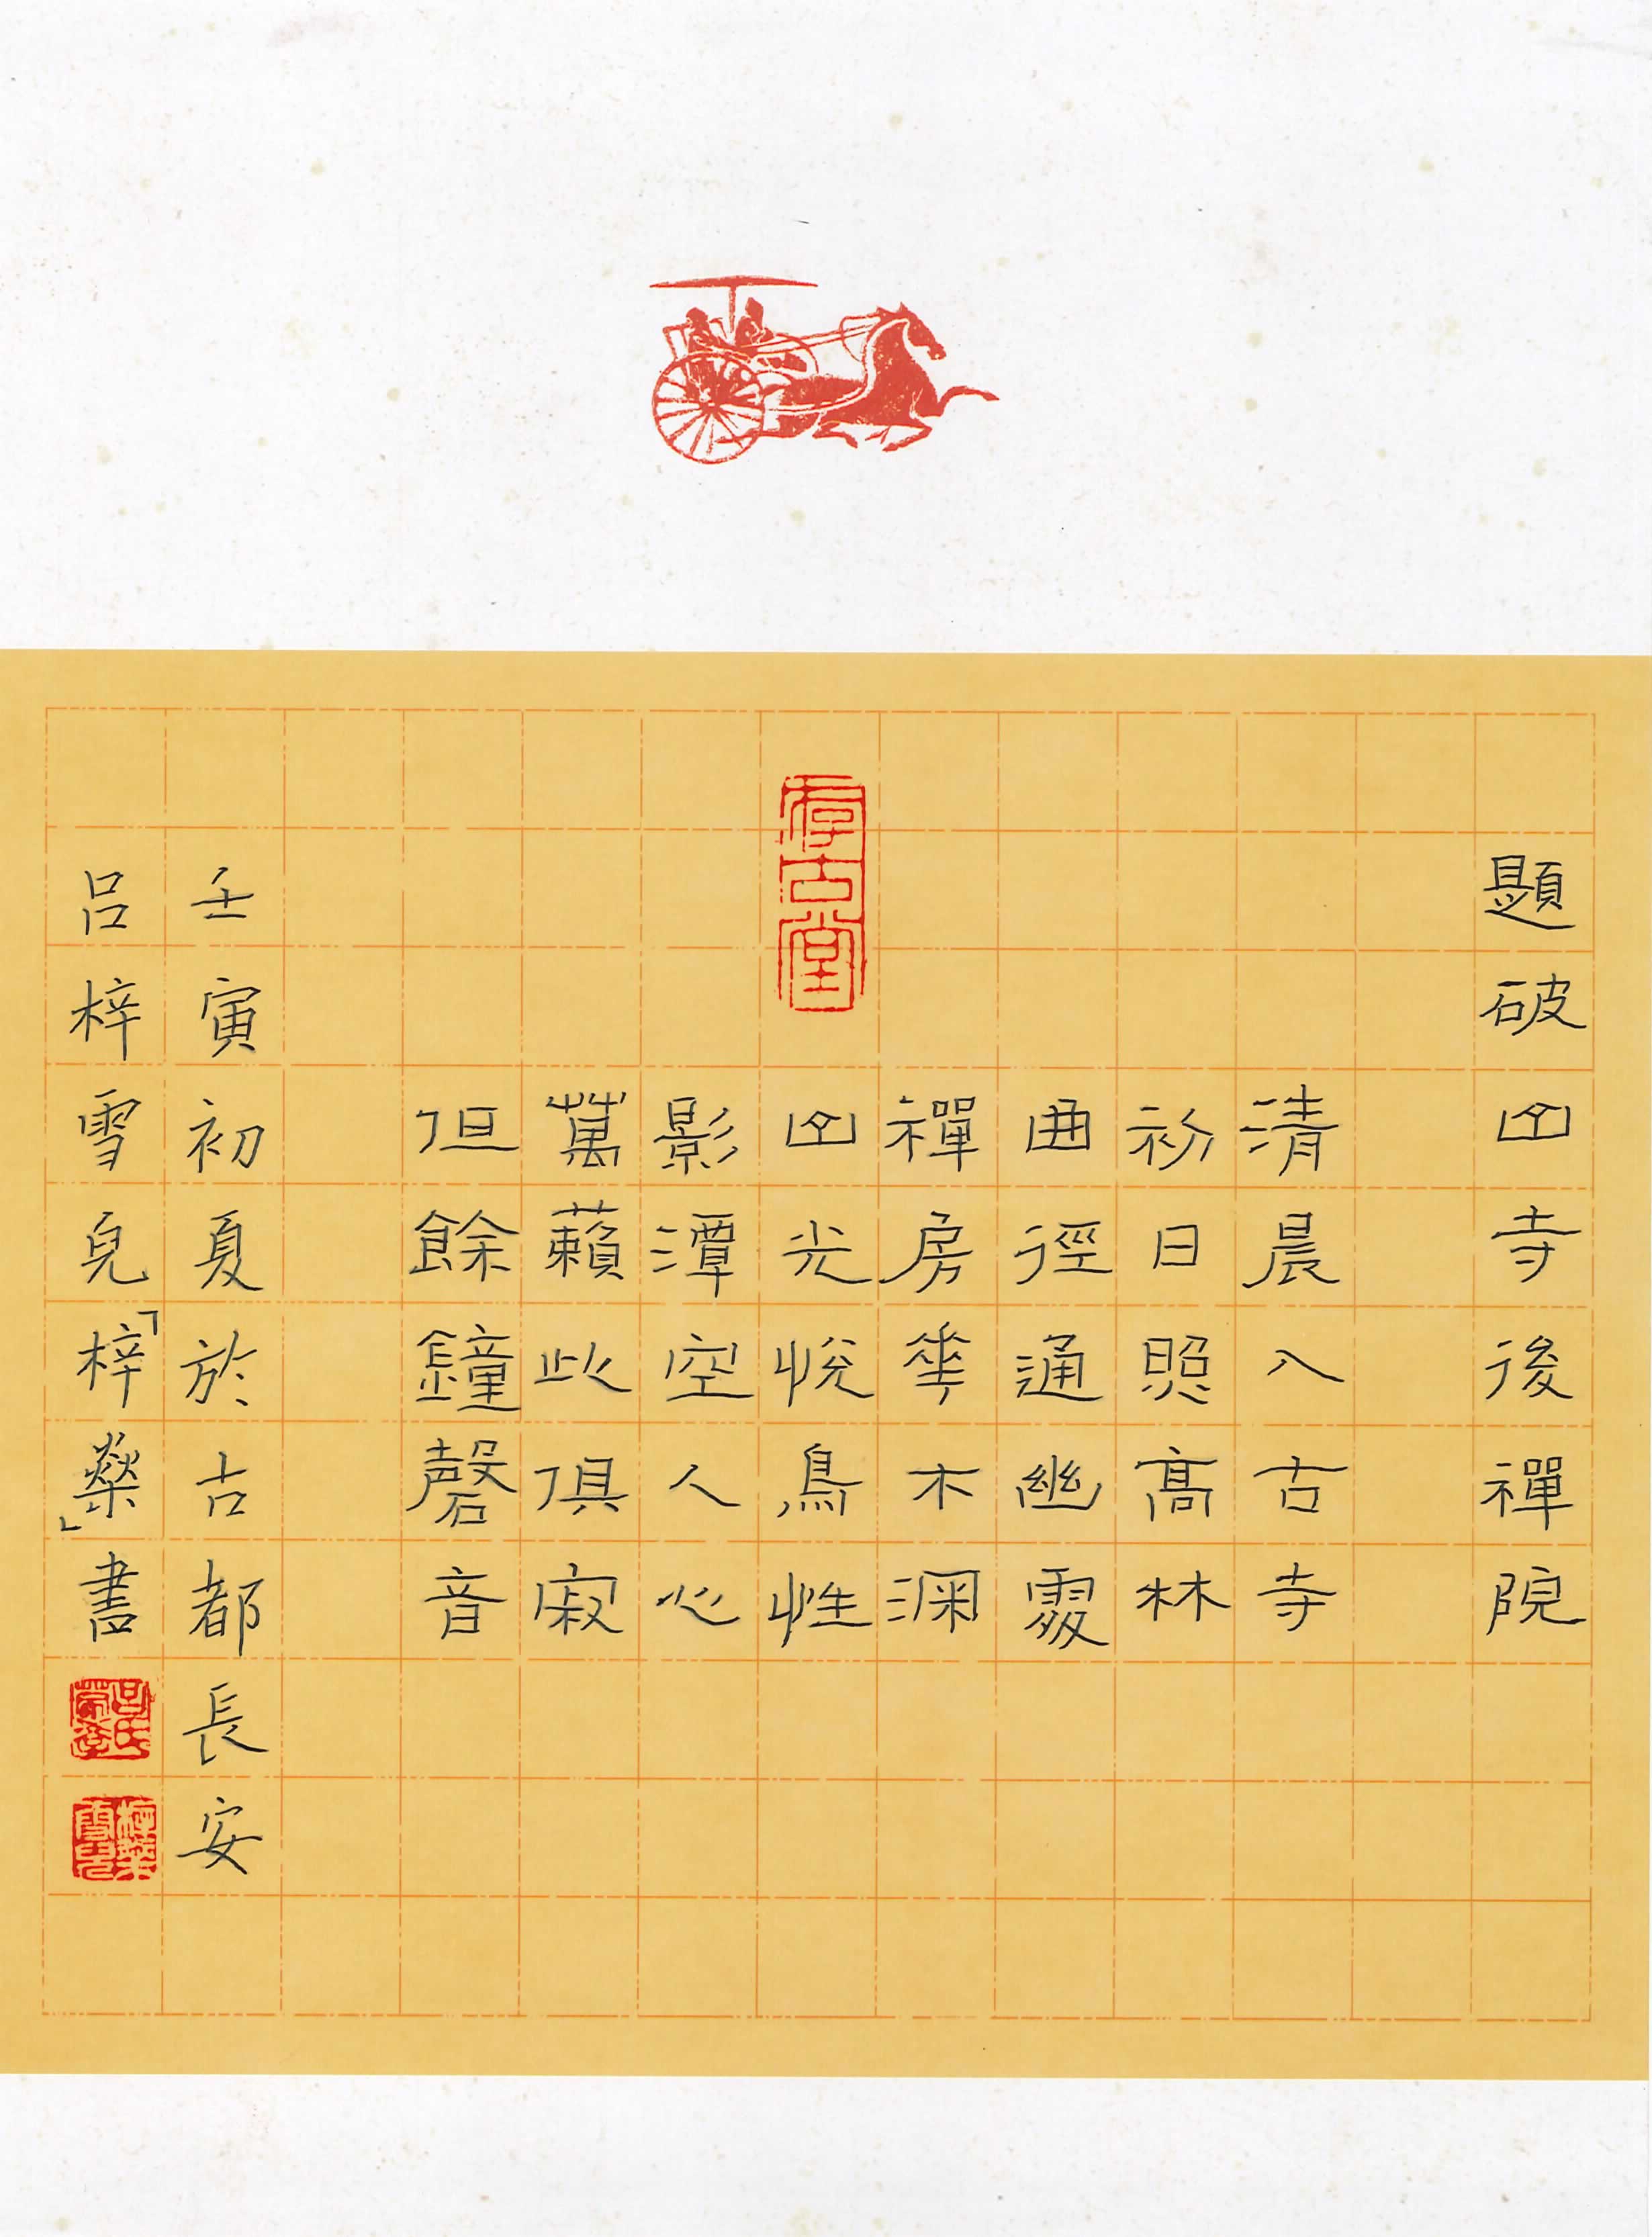 題破山寺後禪院
清晨入古寺
初日照髙林
曲徑通幽處
禪房華木深
山光悅鳥性
影潭空人心
萬籟此俱寂
但餘鐘磬音
壬寅初夏於古都長安
呂梓雪兒「梓燊」書
存古堂
梓燊雪兒